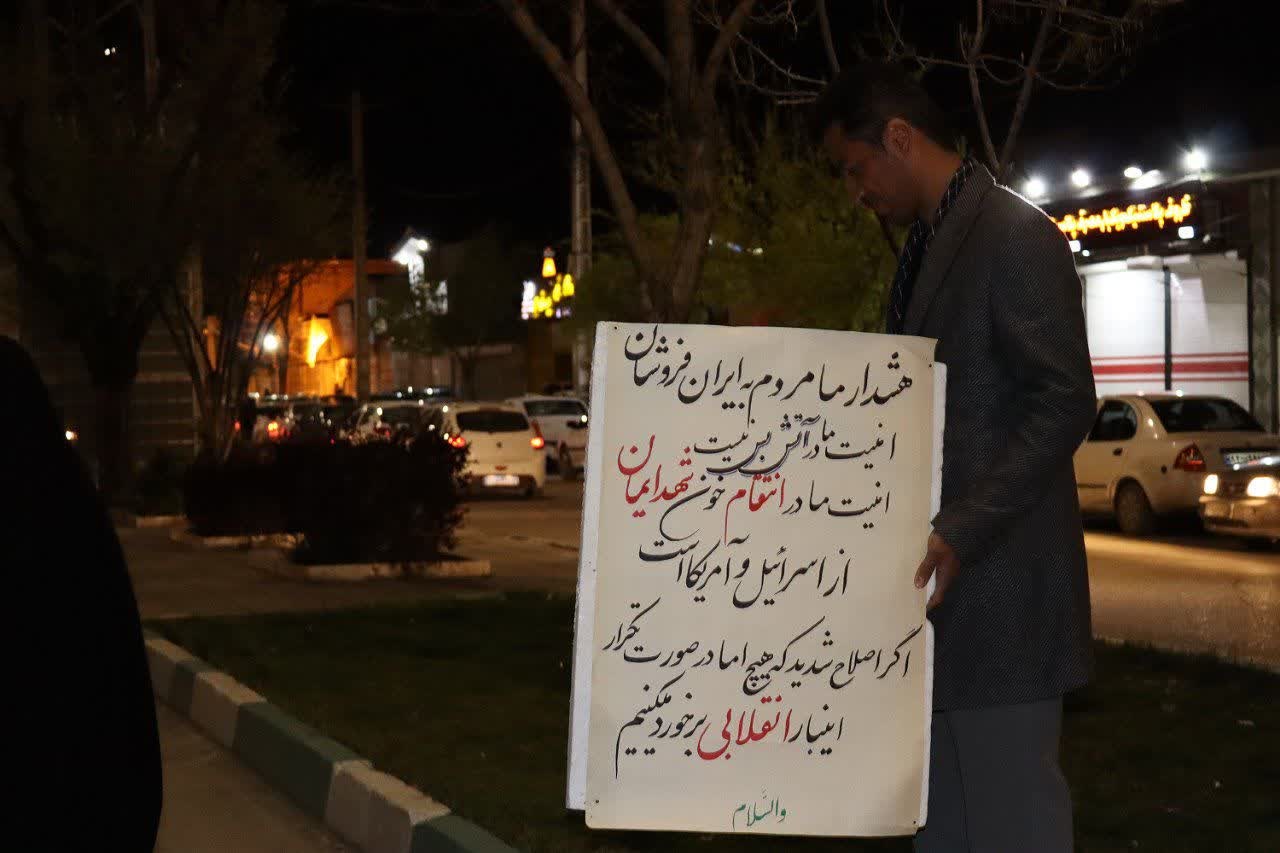 هشدار ما مردم به ایران فروشان
امنیت ما در آتش بس نیست
امنیت ما در انتقام خون شهدایمان
از اسرائیل و آمریکا است
اگر اصلاح شدید که هیچ اما در صورت تکرار
اینبار انقلابی برخورد میکنیم
والسّلام